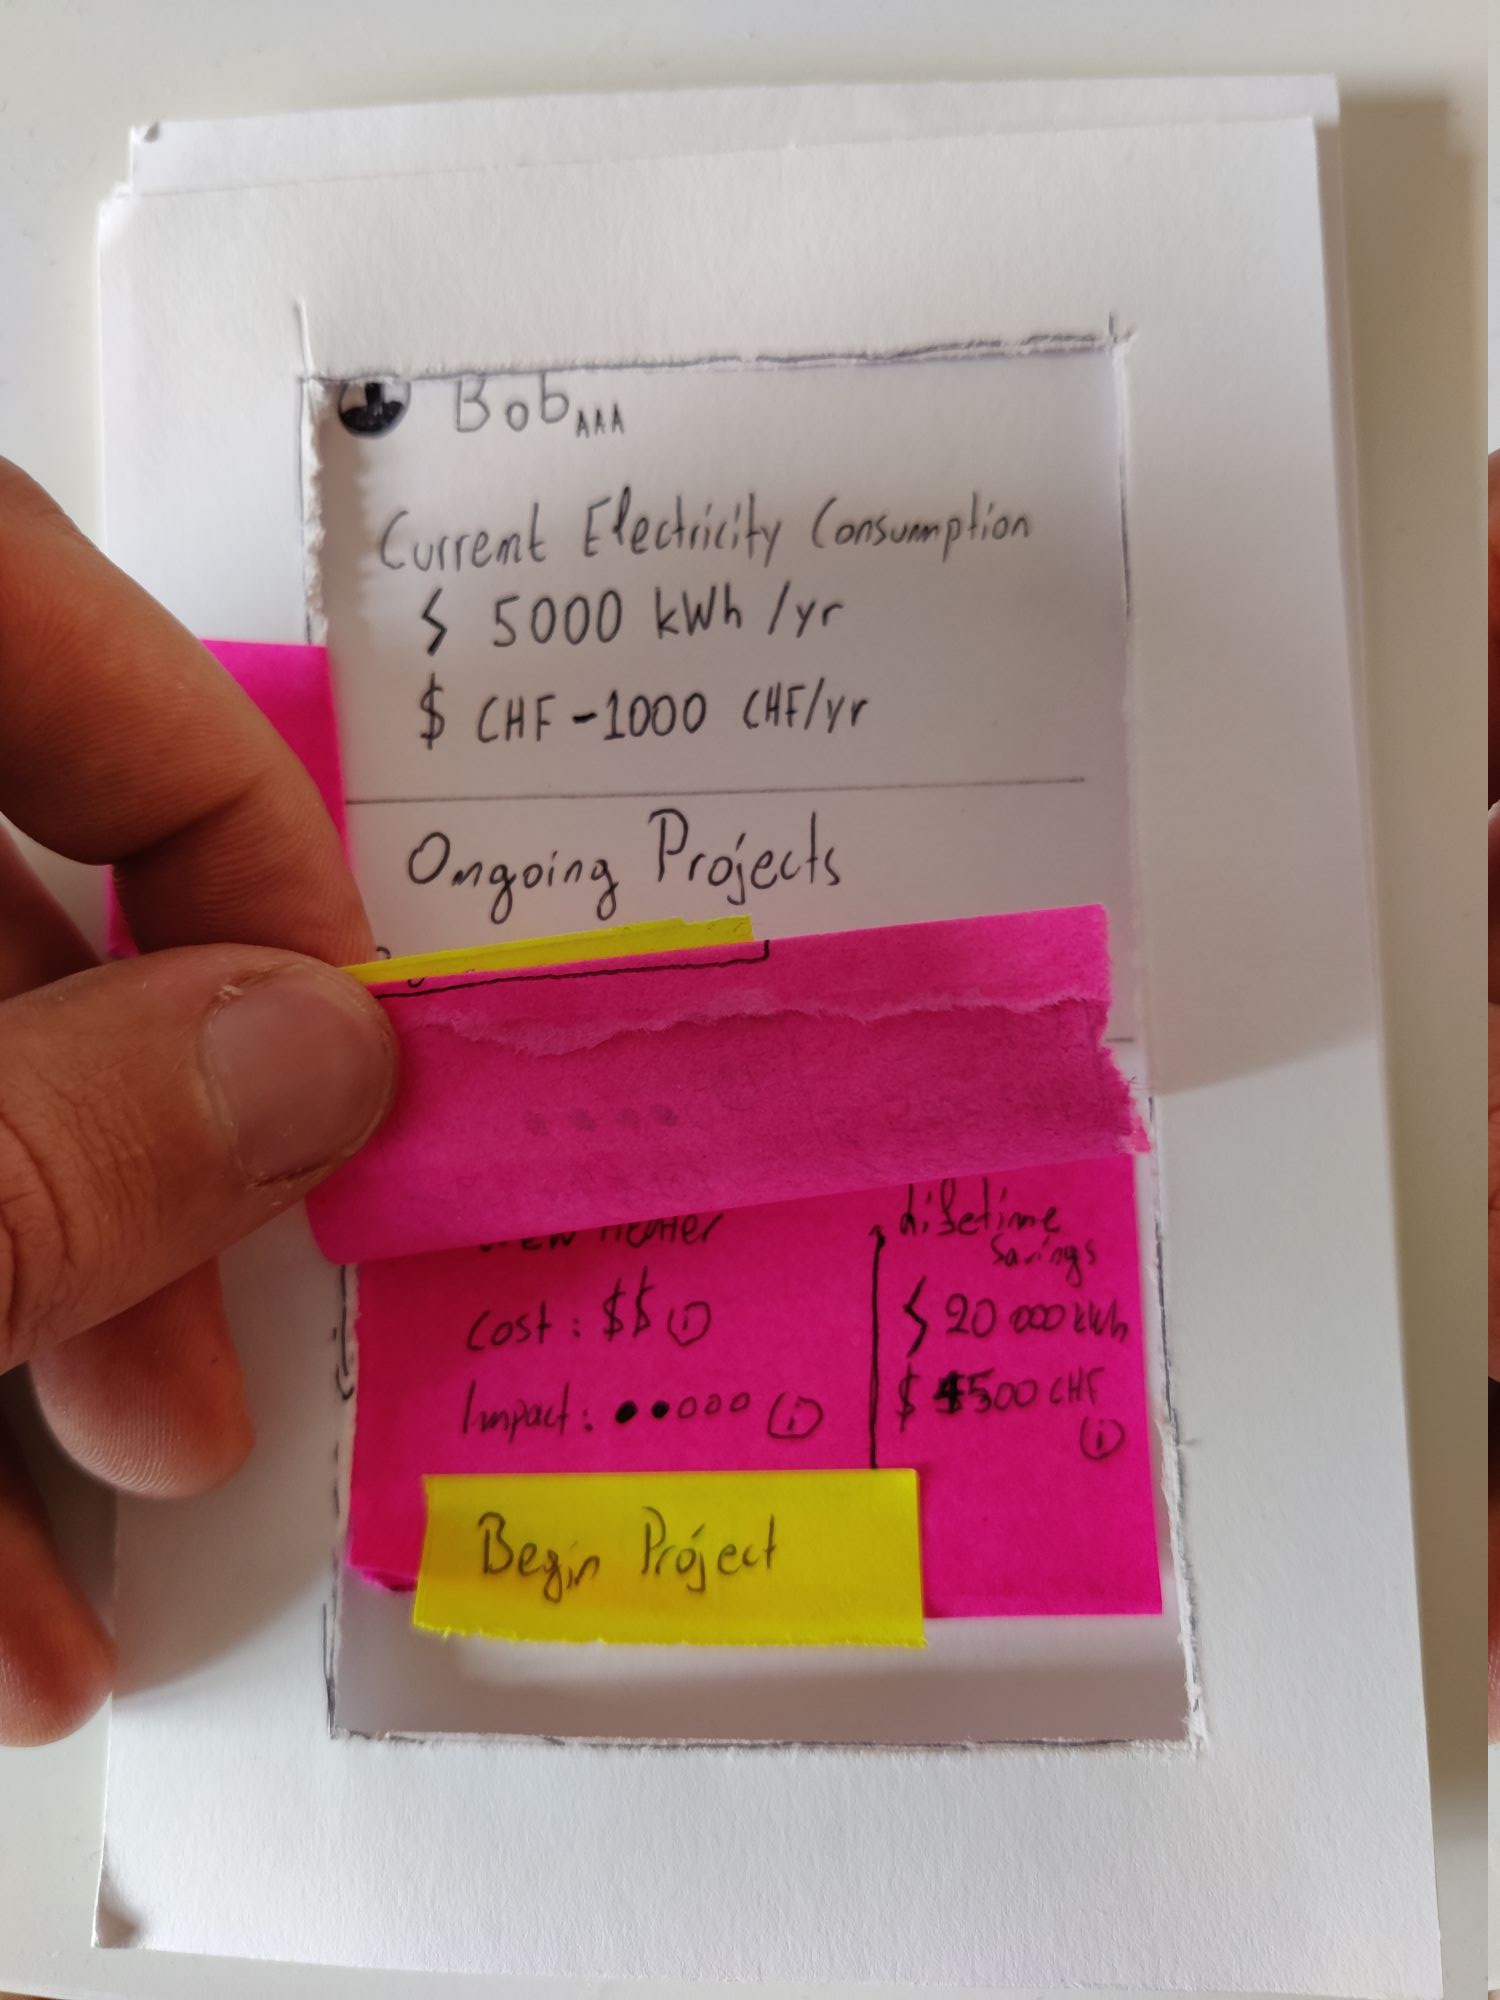 Bob AAA
Current Electricity Consumption
5000 kWh/yr
$ CHF -1000 CHF/yr
Ongoing Projects
Heater
Cost: $$ i
Impact: ●●○○○ i
Lifetime
Savings
20 000 kWh
$ 500 CHF
i
Begin Project